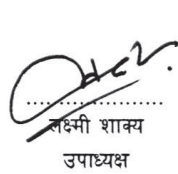 लक्ष्मी शाक्य
उपाध्यक्ष